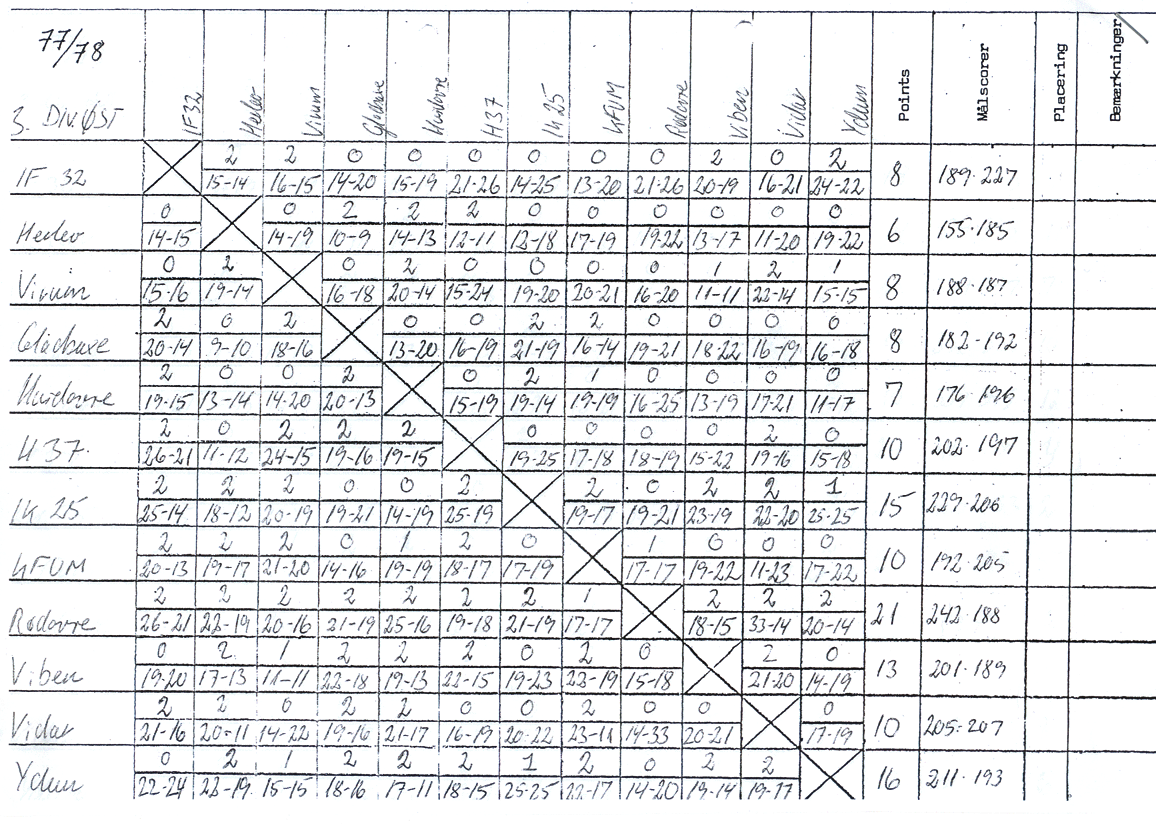 77/78
3. DIV. ØST IF32 Herlev Virum Gladsaxe Hvidovre H37 IK 25 KFUM Rødovre Viben Vidar Ydun Points Målscorer Placering Bemærkninger
2 2 0 0 0 0 0 0 2 0 2
IF 32 15-14 16-15 14-20 15-19 21-26 14-25 13-20 21-26 20-19 16-21 24-22 8 189-227
0 0 2 2 2 0 0 0 0 0 0
Herlev 14-15 14-19 10-9 14-13 12-11 12-18 17-19 19-22 13-17 11-20 19-22 6 155-185
0 2 0 2 0 0 0 0 1 2 1
Virum 15-16 19-14 16-18 20-14 15-24 19-20 20-21 16-20 11-11 22-14 15-15 8 188-187
2 0 2 0 0 2 2 0 0 0 0
Gladsaxe 20-14 9-10 18-16 13-20 16-19 21-19 16-14 19-21 18-22 16-19 16-18 8 182-192
2 0 0 2 0 2 1 0 0 0 0
Hvidovre 19-15 13-14 14-20 20-13 15-19 19-14 19-19 16-25 13-19 17-21 11-17 7 176-196
2 0 2 2 2 0 0 0 0 2 0
H 37. 26-21 11-12 24-15 19-16 19-15 19-25 17-18 18-19 15-22 19-16 15-18 10 202-197
2 2 2 0 0 2 2 0 2 2 1
IK 25 25-14 18-12 20-19 19-21 14-19 25-19 19-17 19-21 23-19 22-20 25-25 15 229-206
2 2 2 0 1 2 0 1 0 0 0
KFUM 20-13 19-17 21-20 14-16 19-19 18-17 17-19 17-17 19-22 11-23 17-22 10 192-205
2 2 2 2 2 2 2 1 2 2 2
Rødovre 26-21 22-19 20-16 21-19 25-16 19-18 21-19 17-17 18-15 33-14 20-14 21 242-188
0 2 1 2 2 2 0 2 0 2 0
Viben 19-20 17-13 11-11 22-18 19-13 22-15 19-23 22-19 15-18 21-20 14-19 13 201-189
2 2 0 2 2 0 0 2 0 0 0
Vidar 21-16 20-11 14-22 19-16 21-17 16-19 20-22 23-11 14-33 20-21 17-19 10 205-207
0 2 1 2 2 2 1 2 0 2 2
Ydun 22-24 22-19 15-15 18-16 17-11 18-15 25-25 22-17 14-20 19-14 19-17 16 211-193